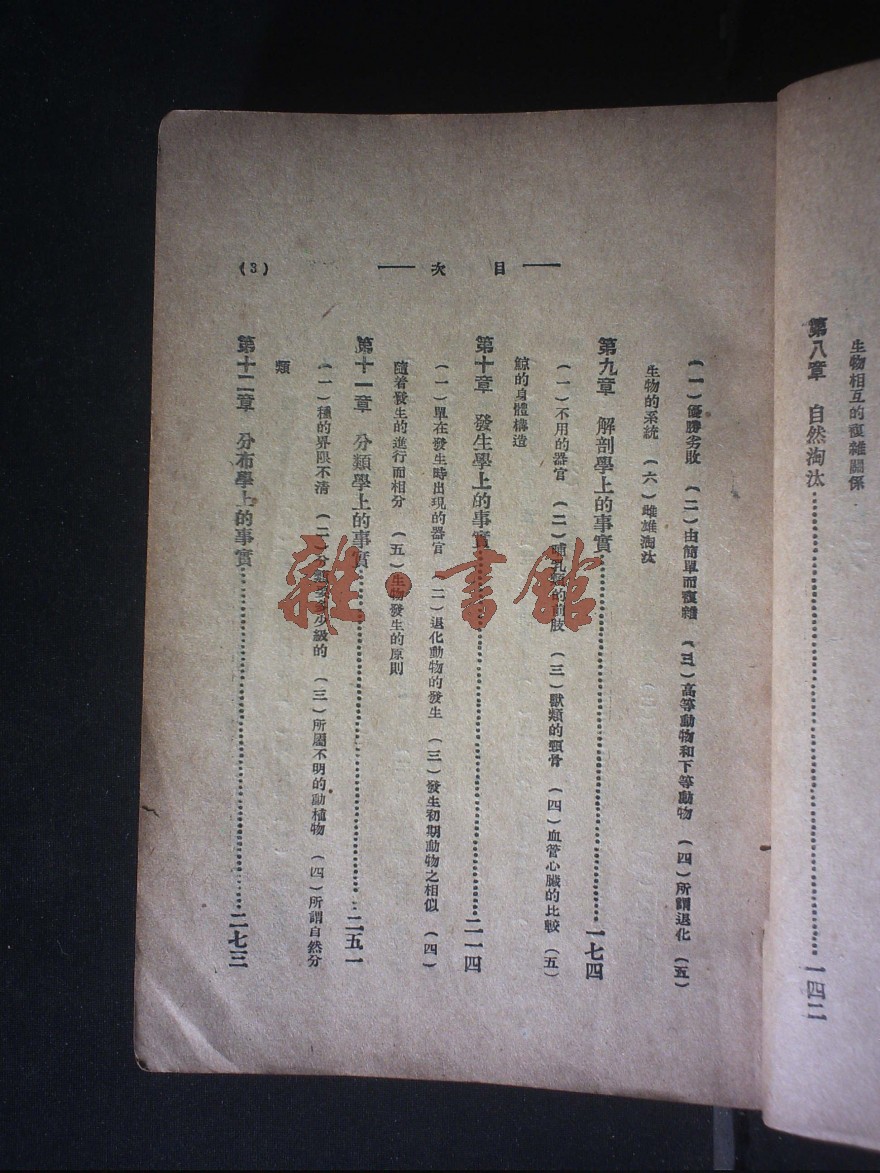 生物相互的複雜關係
第八章 自然淘汰……一四二
(3) 目次
(一)優勝劣敗 (二)由簡單而複雜 (三)高等動物和下等動物 (四)所謂退化 (五)
生物的系統 (六)雌雄淘汰
第九章 解剖學上的事實……一七四
(一)不用的器官 (二)哺乳類的前肢 (三)獸類的頸骨 (四)血管心臟的比較 (五)
鯨的身體構造
第十章 發生學上的事實……二一四
(一)單在發生時出現的器官 (二)退化動物的發生 (三)發生初期動物之相似 (四)
隨着發生的進行而相分 (五)生物發生的原則
第十一章 分類學上的事實……二五一
(一)種的界限不清 (二)分類要多少級的 (三)所屬不明的動植物 (四)所謂自然分
類
第十二章 分布學上的事實……二七三
雜·書館